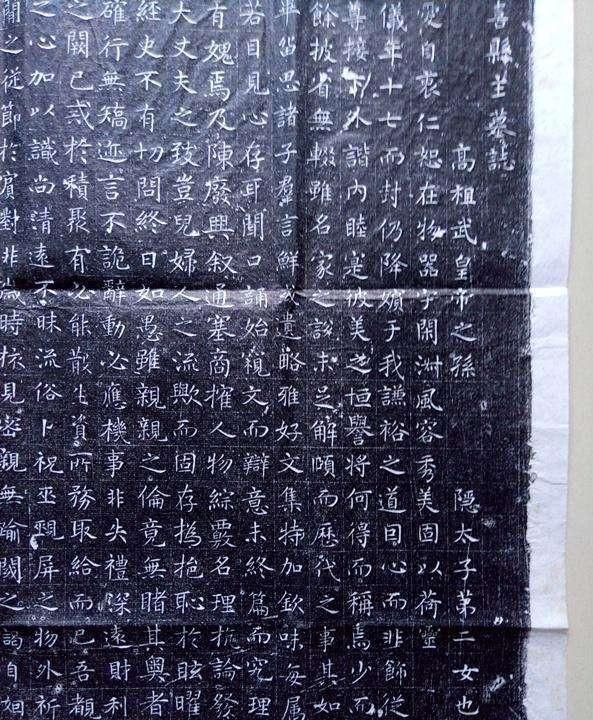 喜縣主墓誌
高祖武皇帝之孫 隱太子第二女也
愛自衷仁恕在物器宇閑淑風容秀美固以荷靈
儀年十七而封仍降嬪于我謙裕之道因心而非飾從
尊接下外諧内睦是彼美之恒譽將何得而稱焉少而
餘披省無輟雖名家之談未足解頤而歷代之事其如
畢侶思諸子羣言鮮或遺略雅好文集特加欽味每属
若目見心存耳聞口誦始窺文而辯意未終篇而究理
有媿焉及陳廢興叙通塞商搉人物綜覈名理抗論發
大丈夫之致豈兒婦人之流歟而固存撝挹恥於眩曜
經史不有切問終日如愚雖親親之倫竟無睹其奧者
確行無矯迹言不詭辭動必應機事非失禮深遠財利
之闕已戒於積聚有必能散生資所務取給而已吾覩
之心加以識尚清遠不昧流俗卜祝巫覡屏之物外祈
閫之從節於賓對非歲時核見密親無踰閾之謁自迴